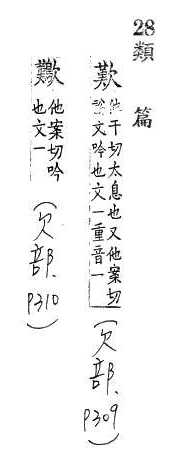 28
類篇
歎 他干切太息也又他案切
說文吟也文一重音一
(欠部.P309)
歎 他案切吟
也文一
(欠部.P310)